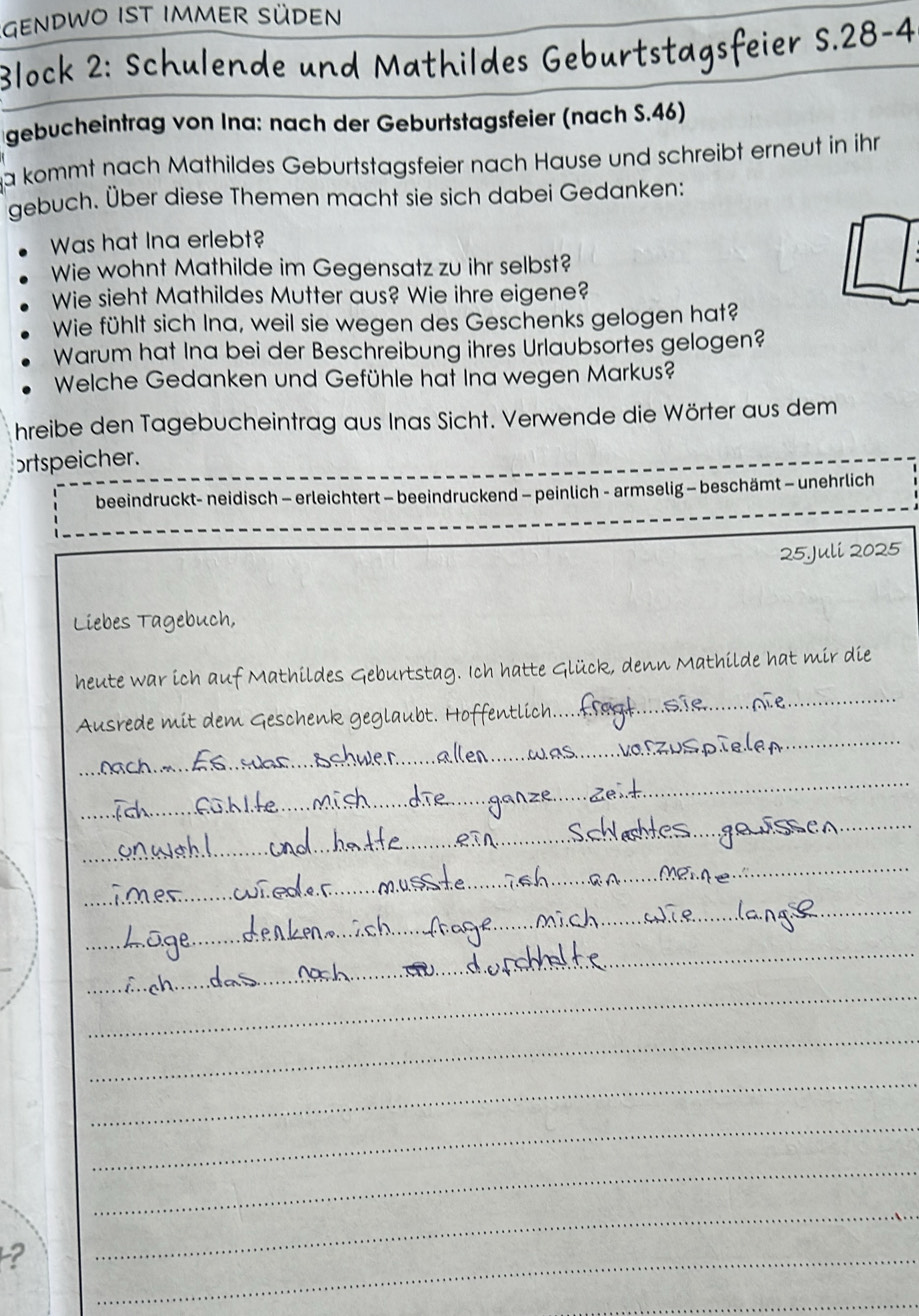 GENDWO IST IMMER SÜDEN
Block 2: Schulende und Mathildes Geburtstagsfeier S.28-4
gebucheintrag von Ina: nach der Geburtstagsfeier (nach S.46)
a kommt nach Mathildes Geburtstagsfeier nach Hause und schreibt erneut in ihr
gebuch. Über diese Themen macht sie sich dabei Gedanken:
• Was hat Ina erlebt?
• Wie wohnt Mathilde im Gegensatz zu ihr selbst?
• Wie sieht Mathildes Mutter aus? Wie ihre eigene?
• Wie fühlt sich Ina, weil sie wegen des Geschenks gelogen hat?
• Warum hat Ina bei der Beschreibung ihres Urlaubsortes gelogen?
• Welche Gedanken und Gefühle hat Ina wegen Markus?
hreibe den Tagebucheintrag aus Inas Sicht. Verwende die Wörter aus dem
ortspeicher.
beeindruckt- neidisch – erleichtert – beeindruckend – peinlich - armselig – beschämt – unehrlich
25.Juli 2025
Liebes Tagebuch,
heute war ich auf Mathildes Geburtstag. Ich hatte Glück, denn Mathilde hat mir die
Ausrede mit dem Geschenk geglaubt. Hoffentlich fragt sie nie
nach. Es war schwer allen was vorzuspielen
ich fühlte mich die ganze zeit
unwohl und hatte ein Schlechtes gewissen
imer wieder musste ich an meine
Lüge denken. ich frage mich wie lange
ich das noch durchhalte
?